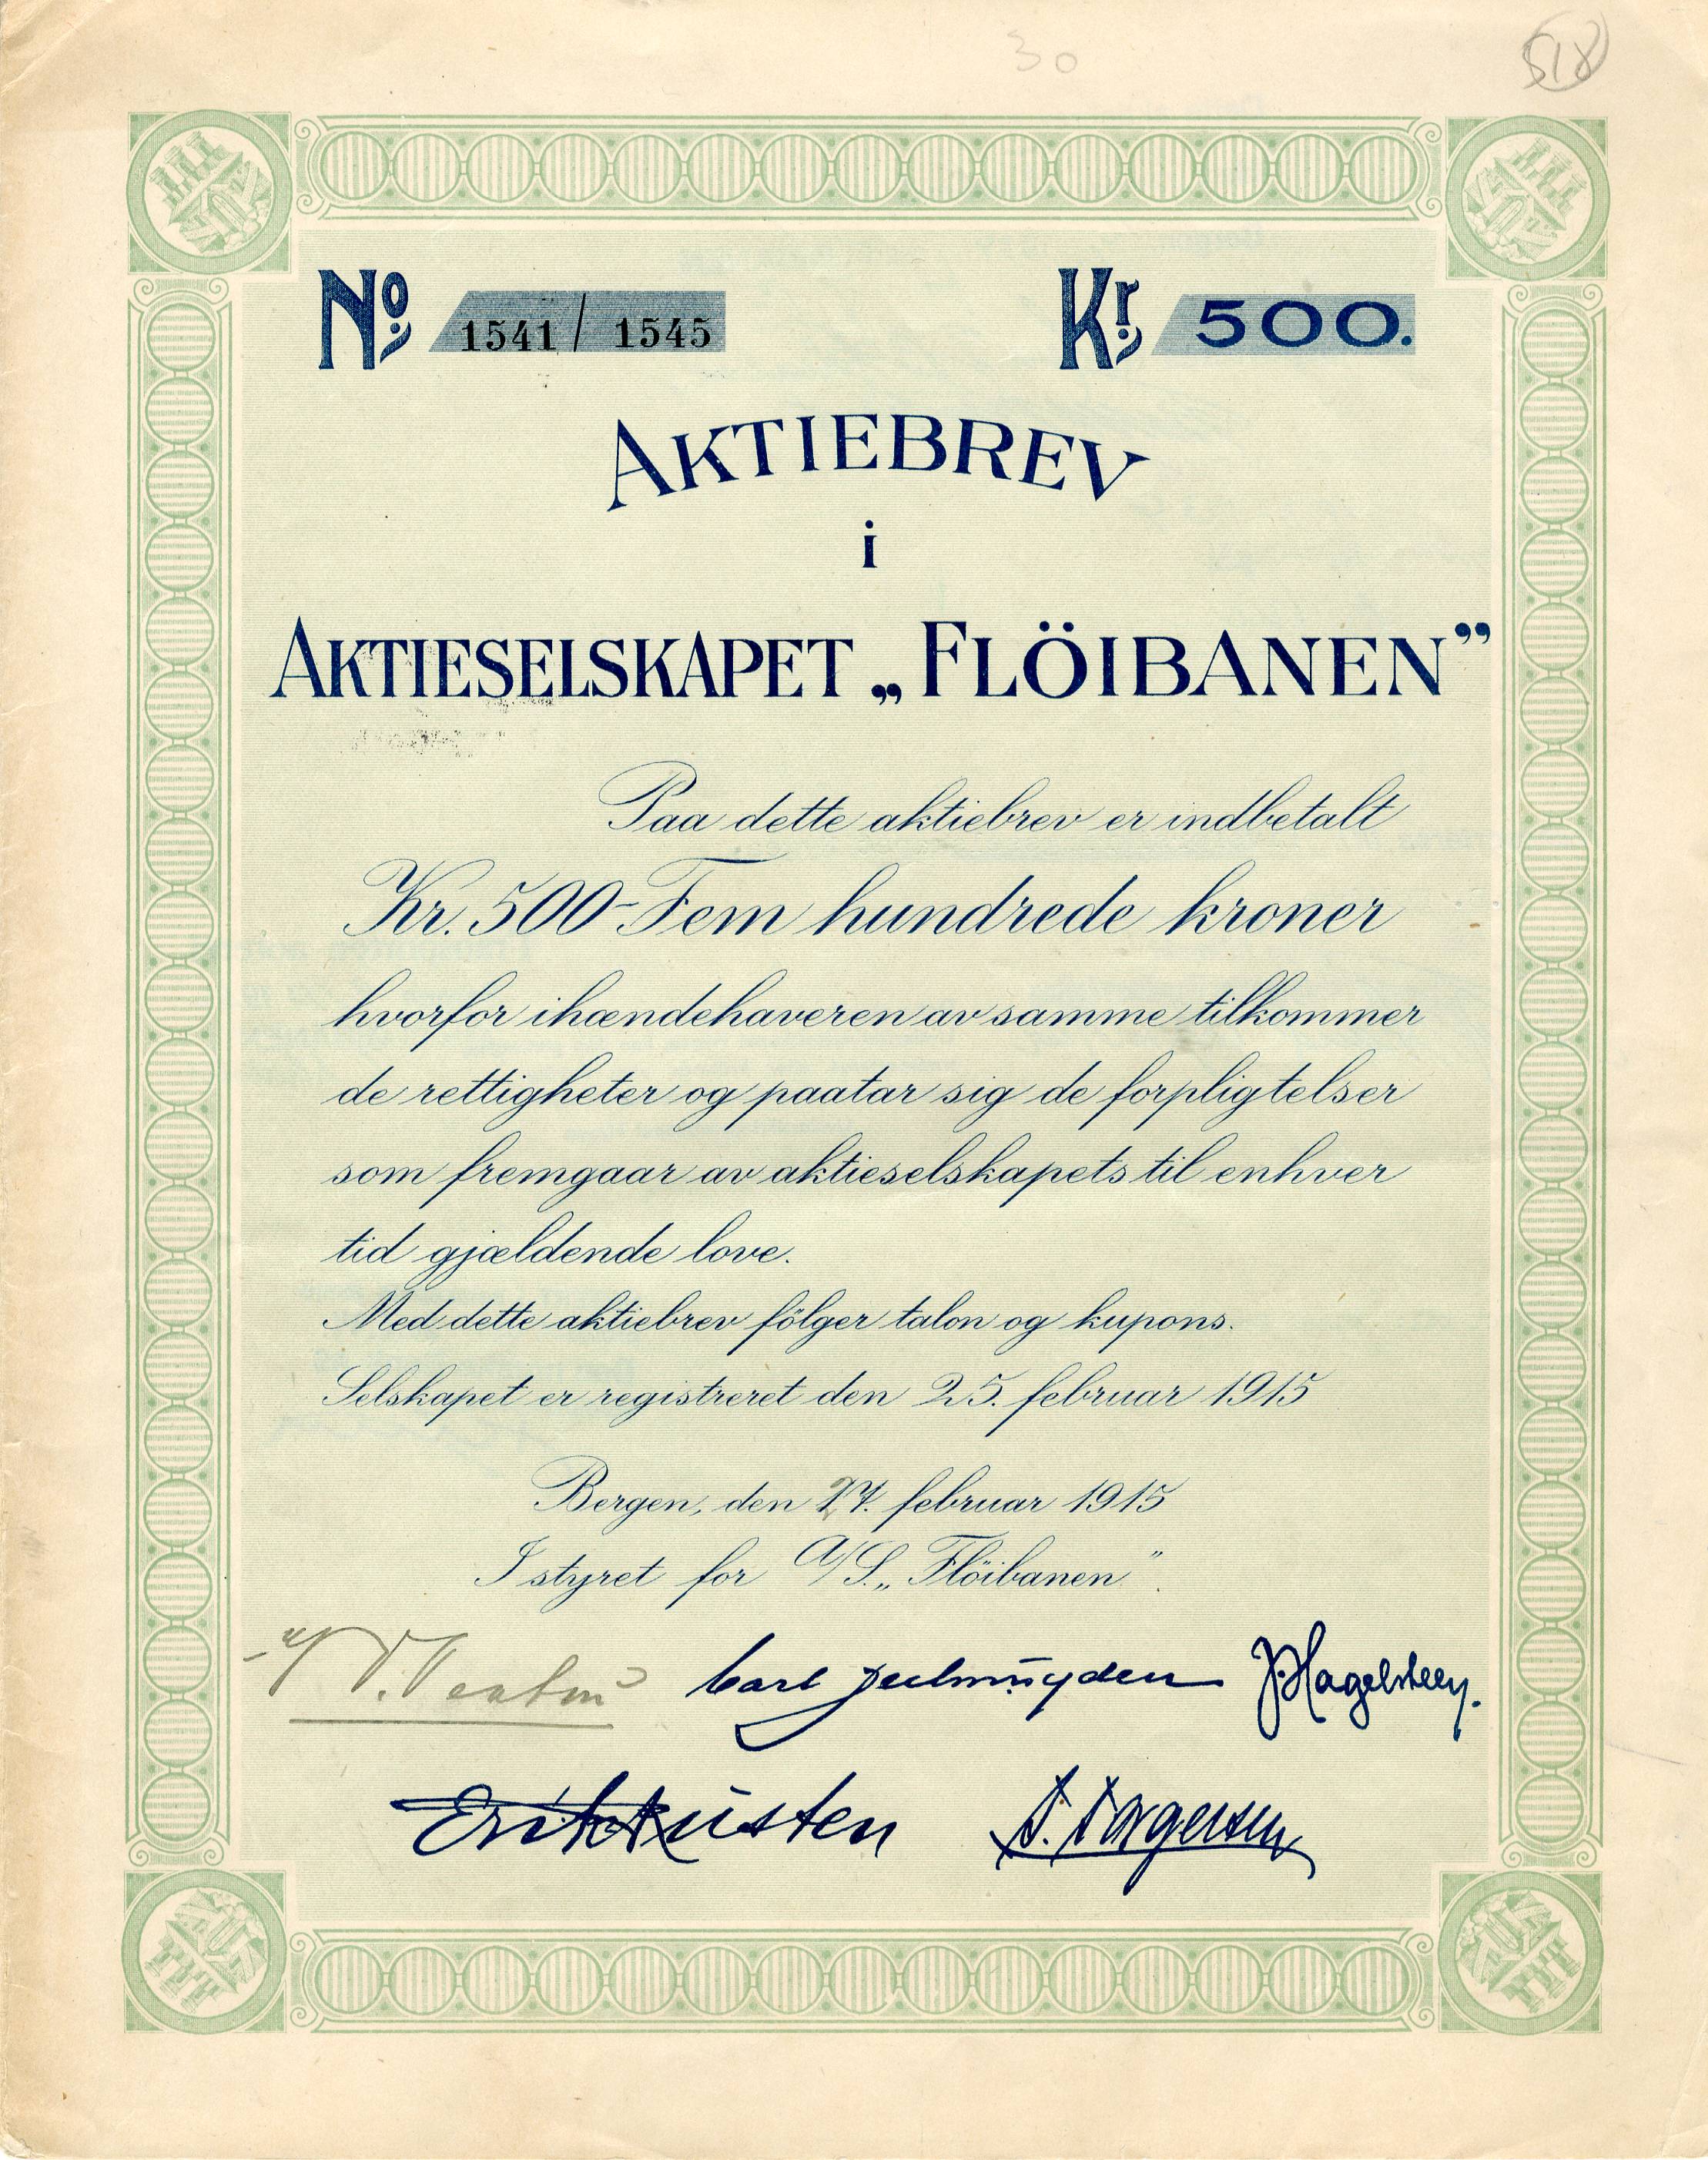 30
518
No. 1541 / 1545 Kr. 500.
AKTIEBREV
i
AKTIESELSKAPET „FLÖIBANEN”
Paa dette aktiebrev er indbetalt
Kr. 500 - Fem hundrede kroner
hvorfor ihændehaveren av samme tilkommer
de rettigheter og paatar sig de forpligtelser
som fremgaar av aktieselskapets til enhver
tid gjældende love.
Med dette aktiebrev fölger talon og kupons.
Selskapet er registreret den 25. februar 1915
Bergen, den 27. februar 1915
I styret for A/S. „Flöibanen”.
Carl
S. Torgersen